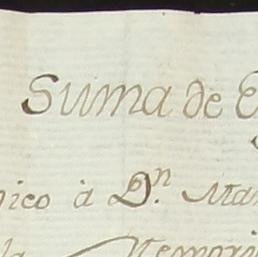 Suma de E
gico à Dⁿ. Man
la Memori